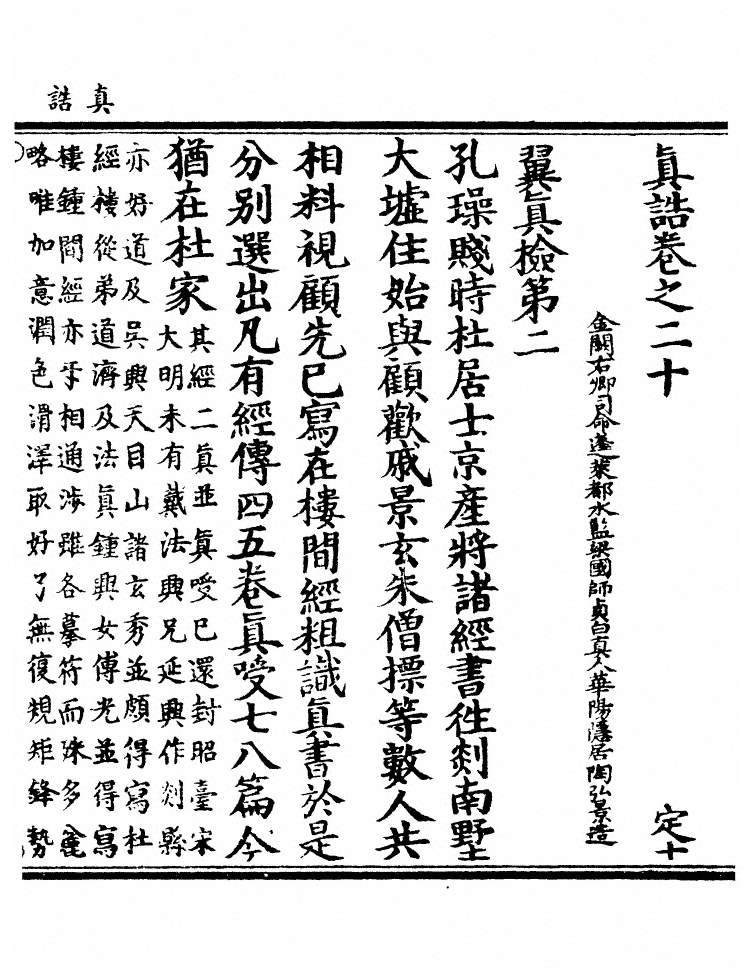 真誥
真誥卷之二十 定十
金闕右卿司命蓬萊都水監梁國師貞白真人華陽隱居陶弘景造
翼真檢第二
孔璪賤時杜居士京產將諸經書徃剡南墅
大墟住始與顧歡戚景玄朱僧摽等數人共
相料視顧先已寫在樓間經粗識真書於是
分別選出凡有經傳四五卷真𠭇七八篇今
猶在杜家其經二真並真𠭇已還封昭臺宋
大明末有戴法興兄延興作剡縣
亦好道及吳興天目山諸玄秀並頗得寫杜
經樓從弟道濟及法真鍾興女傅光並得寫
樓鍾間經亦乎相通涉雖各摹符而殊多麁
略唯加意潤色滑澤取好了無復規矩鋒勢